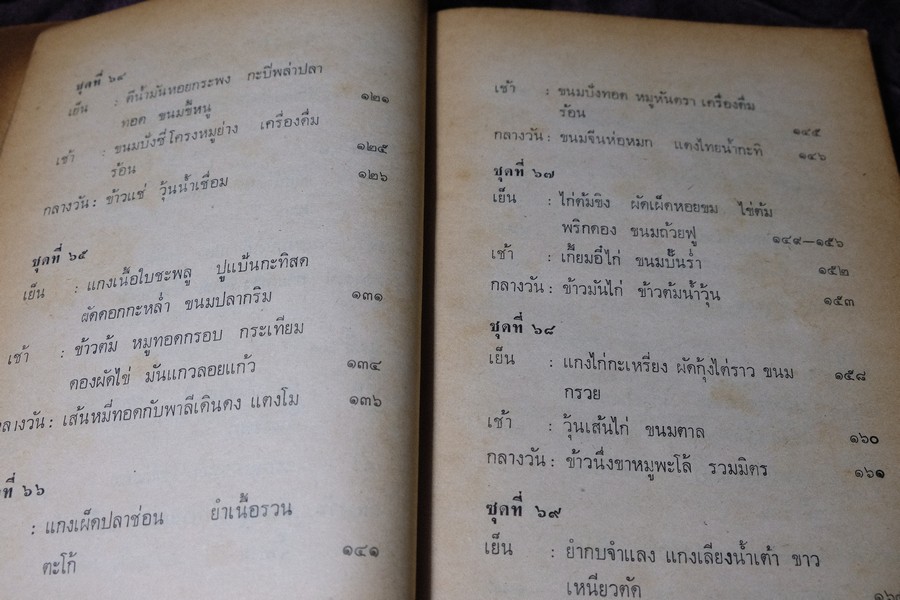 ชุดที่ ๖๔
เย็น : คีน้ำมันหอยกระพง กะปิพล่าปลา
ทอด ขนมขี้หนู ๑๒๑
เช้า : ขนมบังซี่โครงหมูย่าง เครื่องดื่ม
ร้อน ๑๒๕
กลางวัน : ข้าวแช่ วุ้นน้ำเชื่อม ๑๒๖
ชุดที่ ๖๕
เย็น : แกงเนื้อใบชะพลู ปูแป้นกะทิสด
ผัดดอกกะหล่ำ ขนมปลากริม ๑๓๑
เช้า : ข้าวต้ม หมูทอดกรอบ กระเทียม
ดองผัดไข่ มันแกวลอยแก้ว ๑๓๔
ลางวัน : เส้นหมี่ทอดกับพาลีเดินดง แตงโม ๑๓๖
ที่ ๖๖
: แกงเผ็ดปลาช่อน ยำเนื้อรวน
ตะโก้ ๑๔๑
เช้า : ขนมบังทอด หมูหันตรา เครื่องดื่ม
ร้อน ๑๔๕
กลางวัน : ขนมจีนห่อหมก แตงไทยน้ำกะทิ ๑๔๖
ชุดที่ ๖๗
เย็น : ไก่ต้มขิง ผัดเผ็ดหอยขม ไข่ต้ม
พริกดอง ขนมถ้วยฟู ๑๔๙—๑๕๖
เช้า : เกี้ยมอี๋ไก่ ขนมบั๊นร่ำ ๑๕๒
กลางวัน : ข้าวมันไก่ ข้าวต้มน้ำวุ้น ๑๕๓
ชุดที่ ๖๘
เย็น : แกงไก่กะเหรี่ยง ผัดกุ้งไต่ราว ขนม
กรวย ๑๕๘
เช้า : วุ้นเส้นไก่ ขนมตาล ๑๖๐
กลางวัน : ข้าวนึ่งขาหมูพะโล้ รวมมิตร ๑๖๑
ชุดที่ ๖๙
เย็น : ยำกบจำแลง แกงเลียงน้ำเต้า ขาว
เหนียวตัด